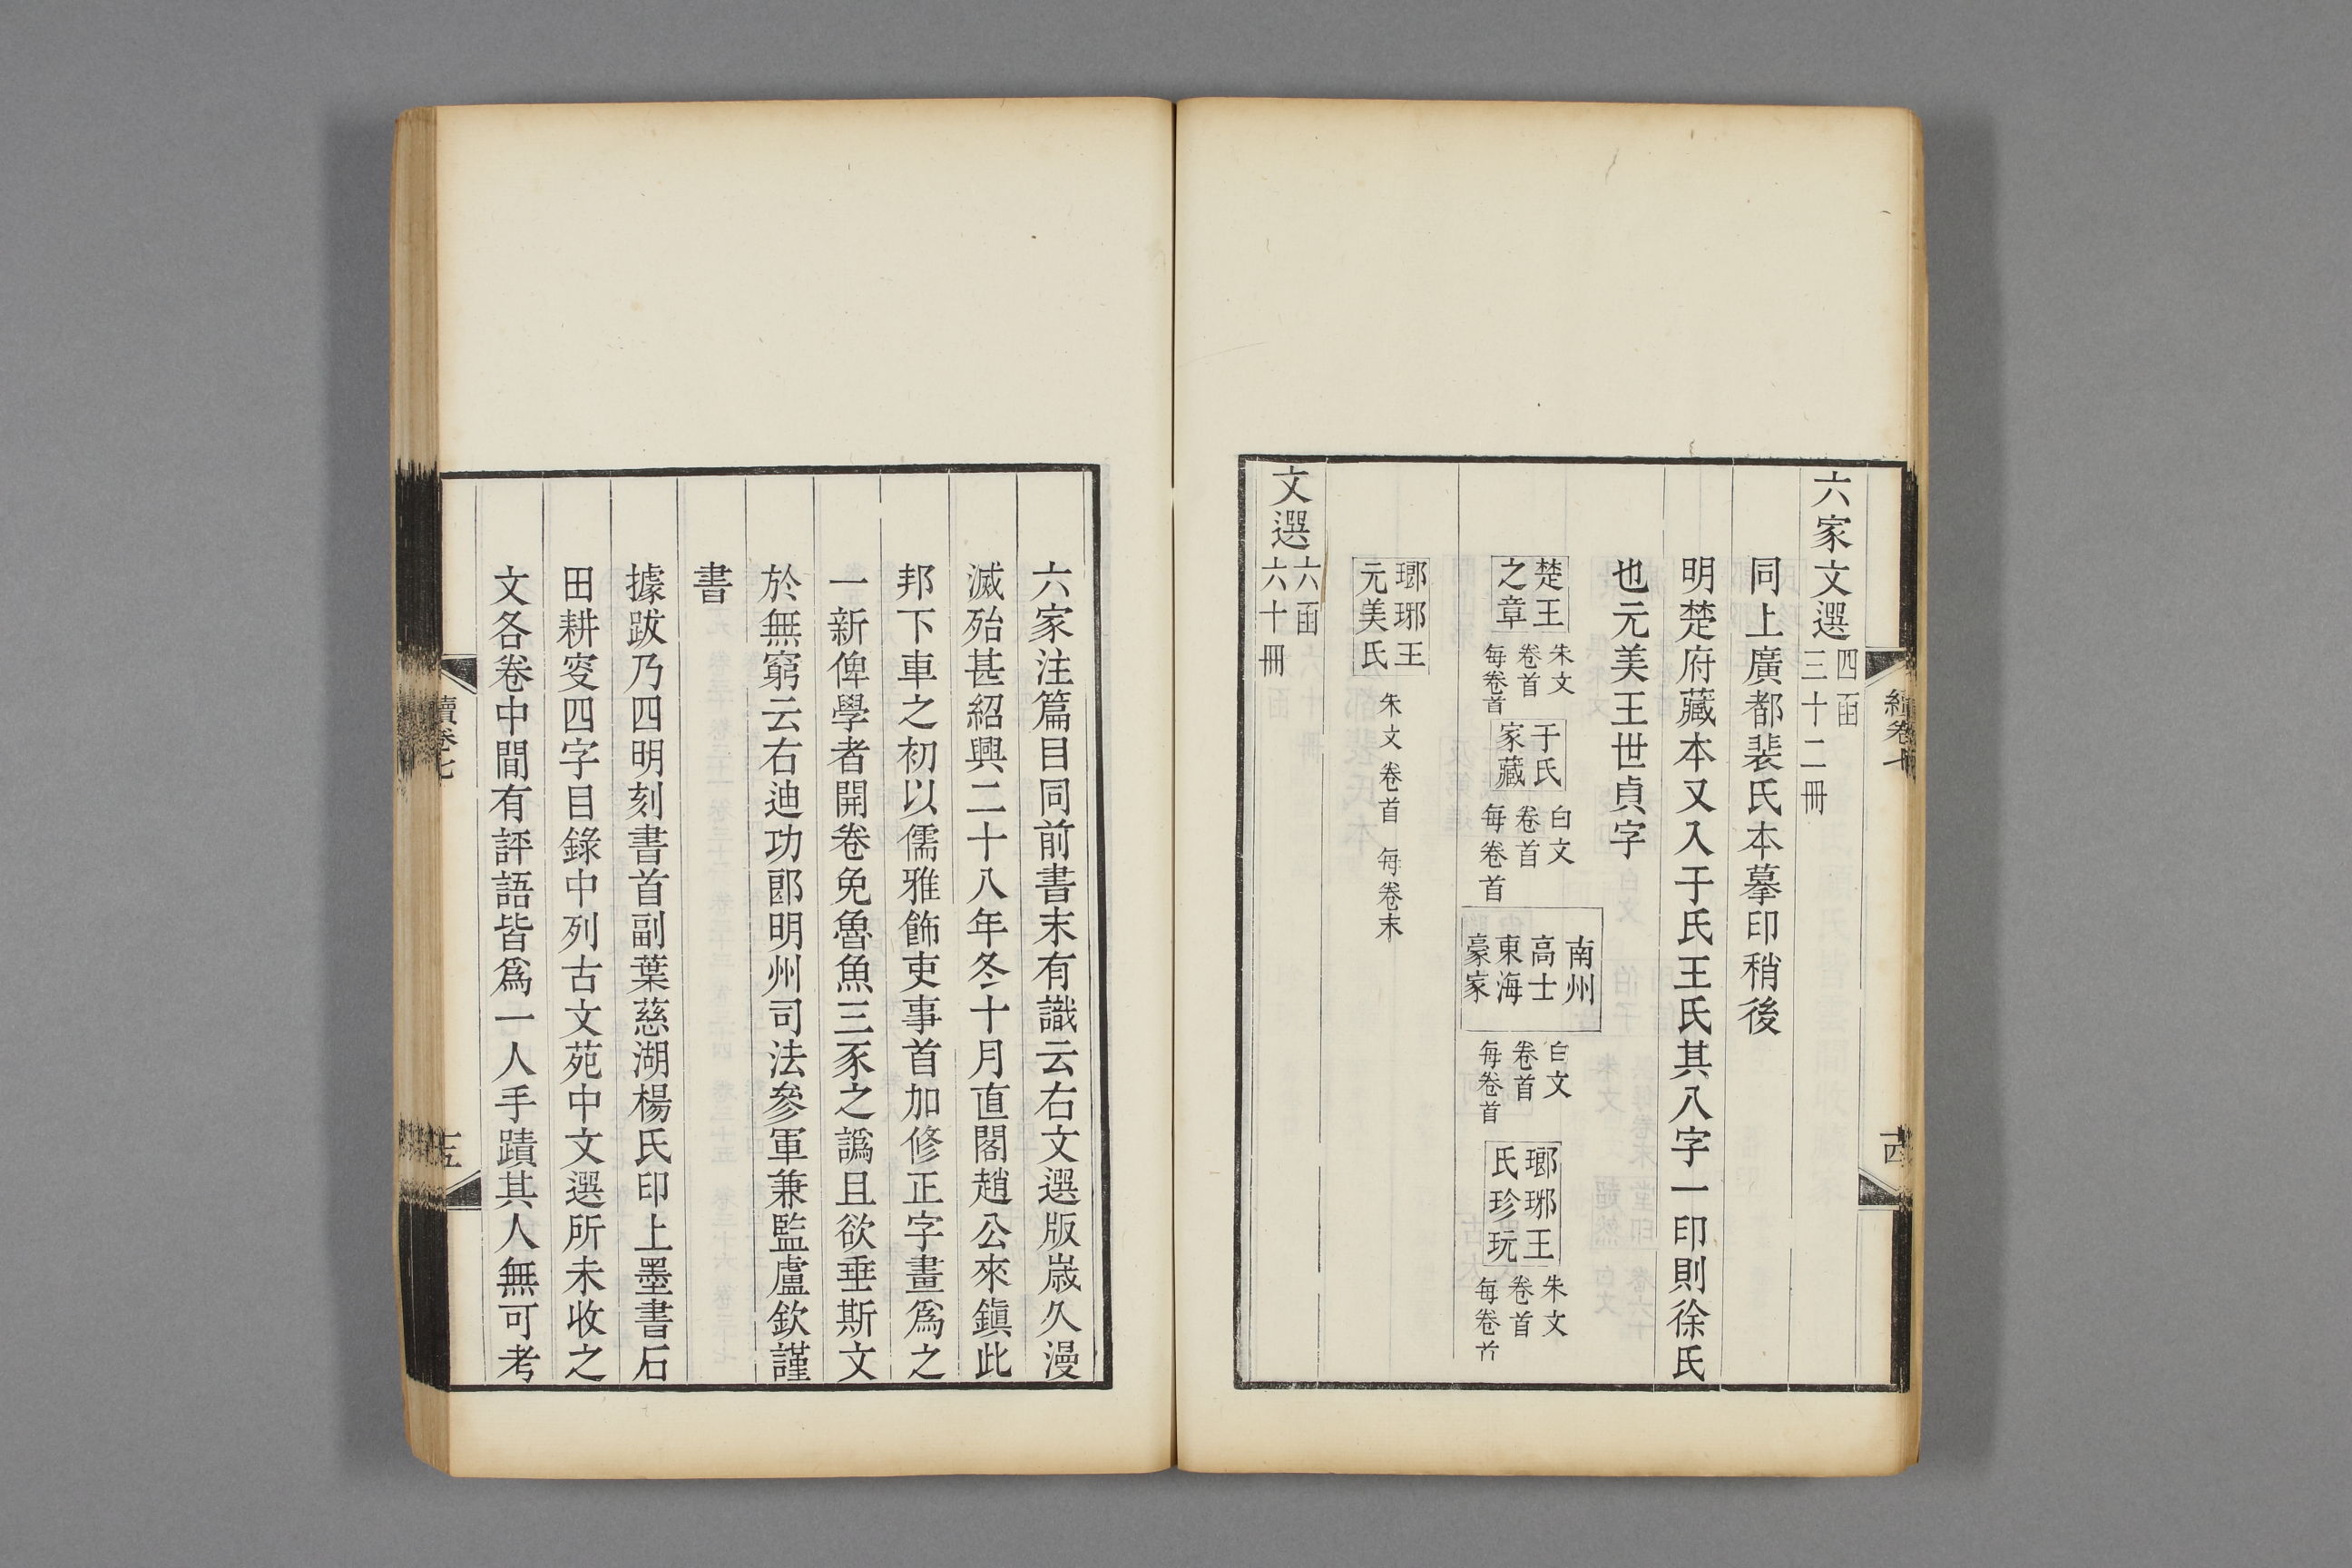 六家文選四函三十二冊
同上廣都裴氏本摹印稍後
明楚府藏本又入于氏王氏其八字一印則徐氏
也元美王世貞字
楚王之章 朱文卷首每卷首 于氏家藏 白文卷首每卷首 南州高士東海豪家 白文卷首每卷首 瑯琊王氏珍玩 朱文卷首每卷首
瑯琊王元美氏 朱文卷首 每卷末
文選六函六十冊
續卷七
十四
六家注篇目同前書末有識云右文選版歲久漫
滅殆甚紹興二十八年冬十月直閣趙公來鎮此
邦下車之初以儒雅飾吏事首加修正字畫爲之
一新俾學者開卷免魯魚三豕之譌且欲垂斯文
於無窮云右迪功郎明州司法參軍兼監盧欽謹
書
據跋乃四明刻書首副葉慈湖楊氏印上墨書石
田耕叟四字目錄中列古文苑中文選所未收之
文各卷中間有評語皆爲一人手蹟其人無可考
續卷七
十五